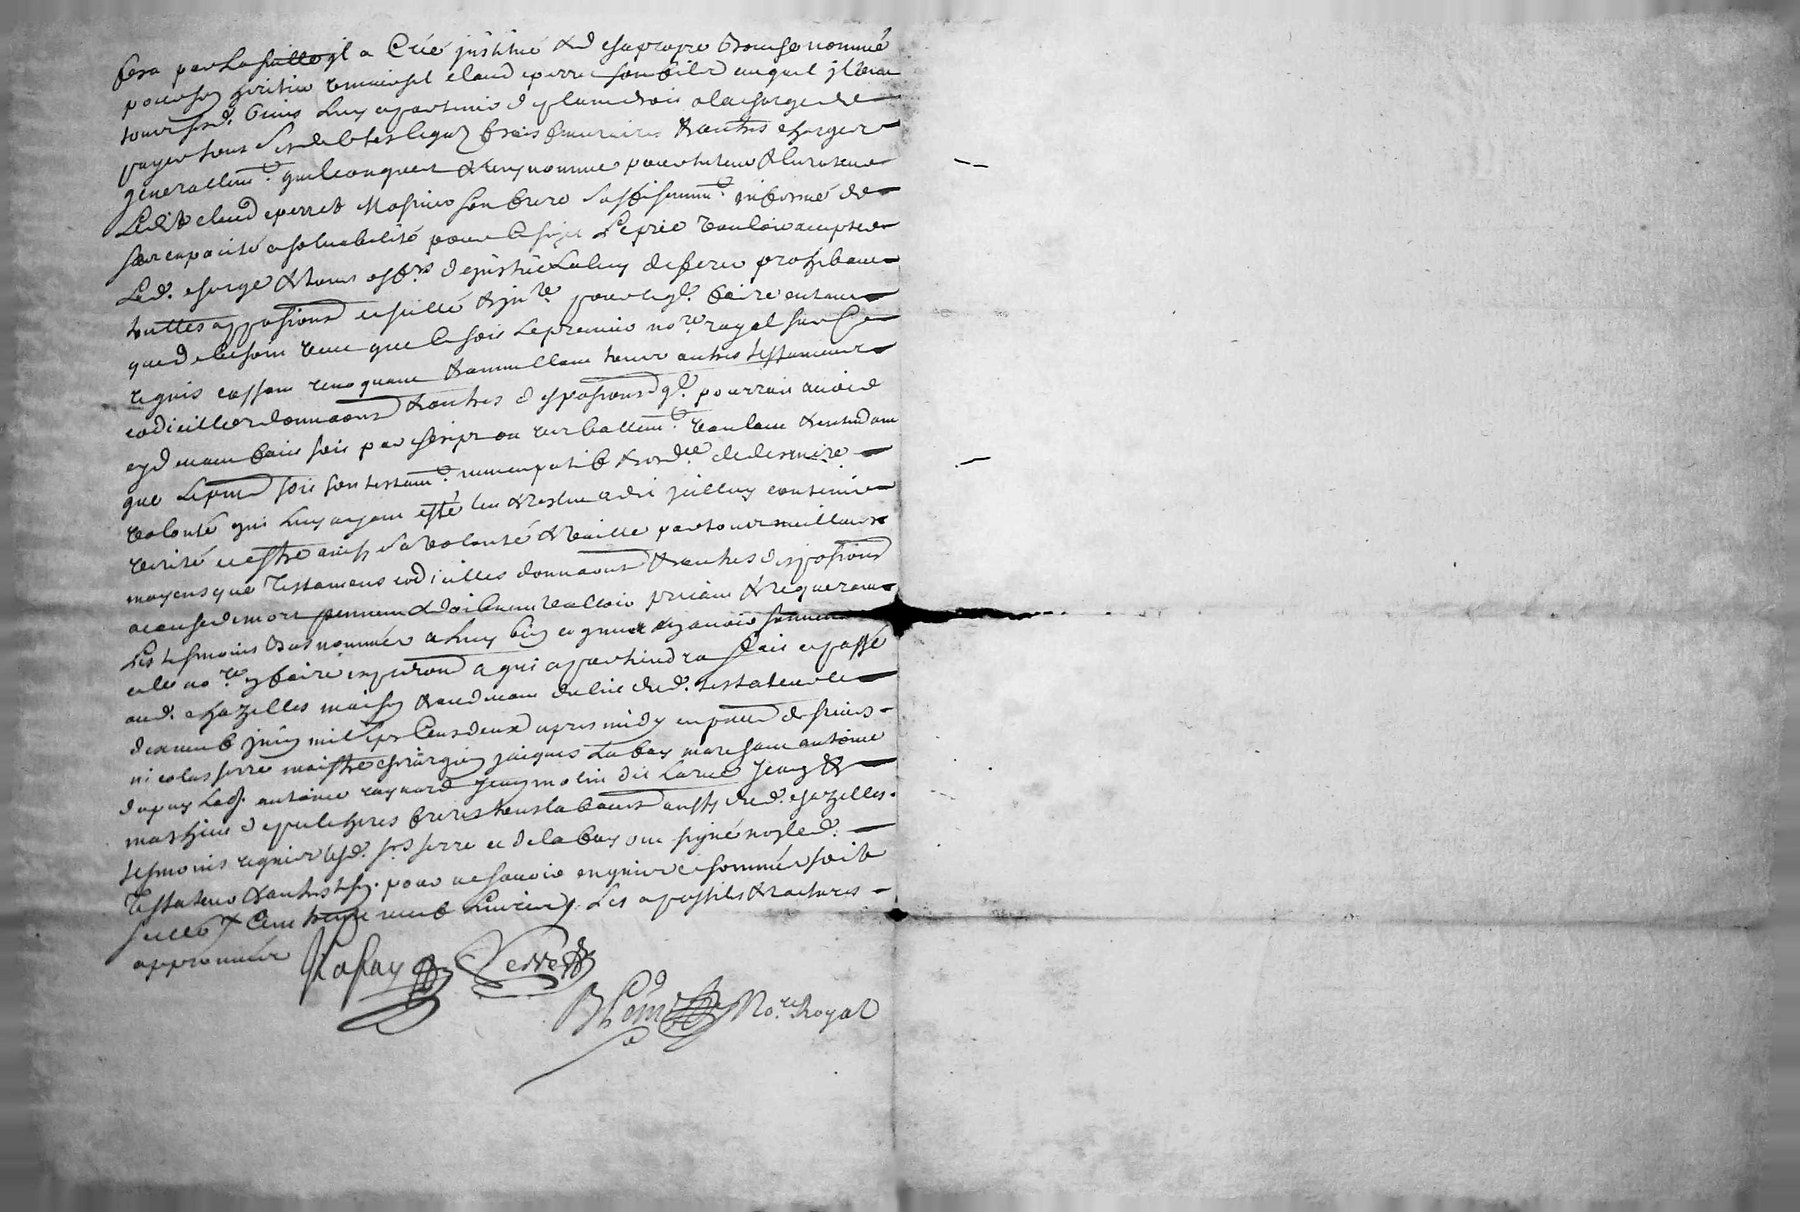 sera par la suitte il a Créé justitué & de sa propre Bouche nommé
pour son heritier universel claude perre son fils auquel il veut
tous sesd. biens luy apartenir de plain droit a la charge de
payer tous ses debtes legaz frais funeraires & autres charges
generallemt. quelconques & luy nomme pour tuteur & curateur
Ledit claud perret Mathieu son frere suffisamment. informé de
sa capacité & solvabilité pour ce sujet Le prie vouloir accepter
Lad. charge & tous offrs de justice La luy deferer prohibant
touttes appositions de scellé & inre. pour leql. faire en tant
que de besoin veut que ce soit Le premier nore. royal sur ce
requis cassant revoquant & annullant tous autres testaments
codicilles donnaons & autres dispositions ql. pourroit avoir
cy devant faits soit par script ou verballemt. voulant & entendant
que Le pnt soit son testamt. nuncupatif & ordre. de derniere
volonté qui luy ayant esté leu & releu a dit jcelluy contenir
verité et estre ainsy sa volonté & vaille par tous meilleurs
moyens que testaments codicilles donnaons & autres dispositions
a cause de mort peuvent & doibvent valloir priant & requerant
Les tesmoins Bas nommés a luy bien cognus dy avoir souvenance
et le nore. y faire expedion a qui appartiendra fait et passé
aud. chazelles maison & audevant du lict dud. testateur le
dixneufe juin mil sept Cens deux apres midy en pnce de sieurs
nicolas serre maistre chirurgien jacques Labay marchant antoine
dupuy Lad. antoine raynard jean molin dit Larue jean &
mathieu depulcheres freres tous laboureurs aussy dud. chazelles.
tesmoins requis lesd. srs serre et delabay ont signé non led.
Testateur & autres tesm. pour ne sçavoir enquis et sommés soit
scellé / Cent trente neufe livres / Les apostils & ratures
approuvées Labay Serre
Nore. Royal